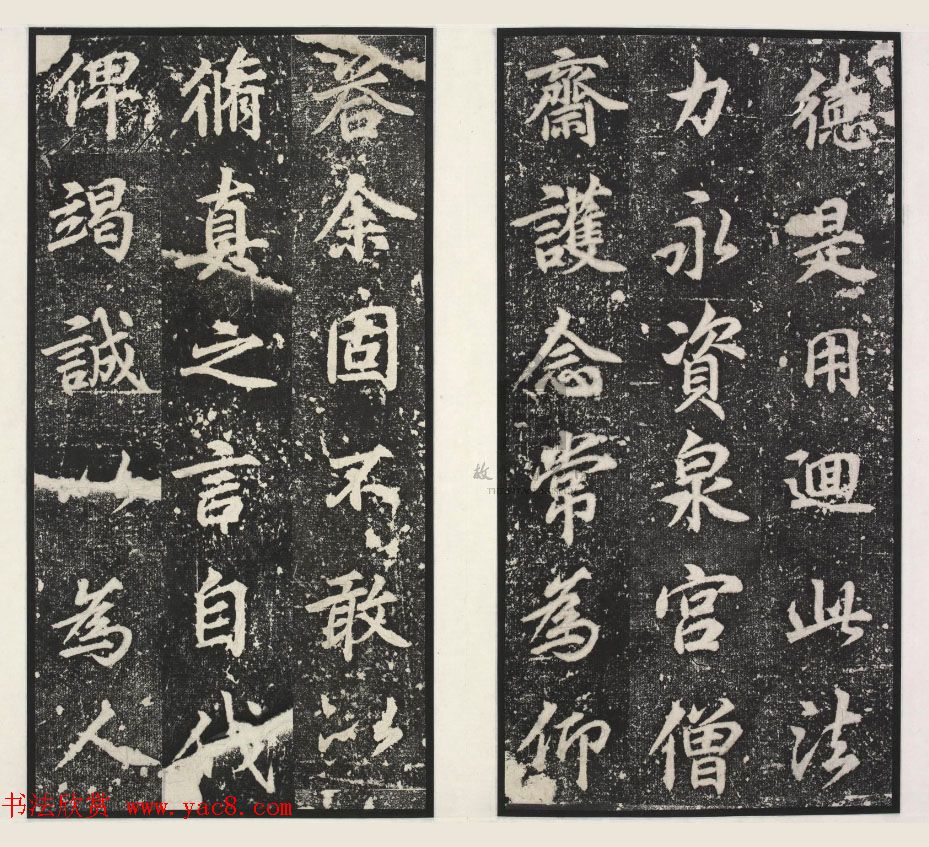 德是用迴此法
力永資泉宮僧
齋護念常為仰
荅余固不敢以
脩真之言自伐
俾竭誠以為人
故
书法欣赏 www.yac8.com